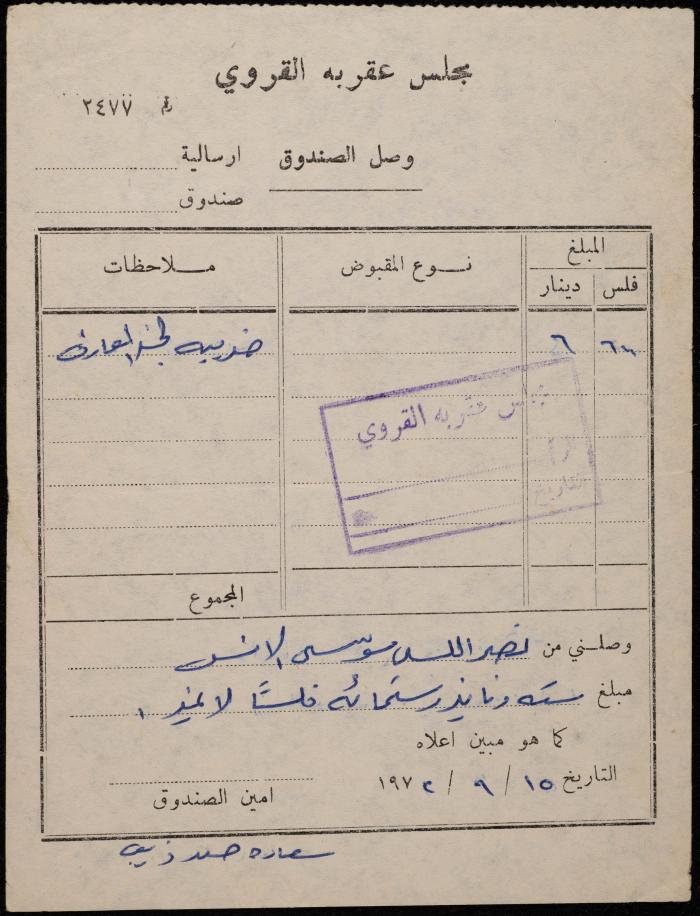 مجلس عقربه القروي
رقم ٢٤٧٧
وصل الصندوق ارسالية
صندوق
المبلغ
فلس دينار نوع المقبوض ملاحظات
٦٠٠ ٦ ضريبه لجنة المعارف
مجلس عقربه القروي
الرقم
التاريخ
المجموع
وصلني من نصر الله موسى
مبلغ سته دنانير وستمائة فلسًا لا غير
كما هو مبين اعلاه
التاريخ ١٥ / ٩ / ١٩٧٢
امين الصندوق